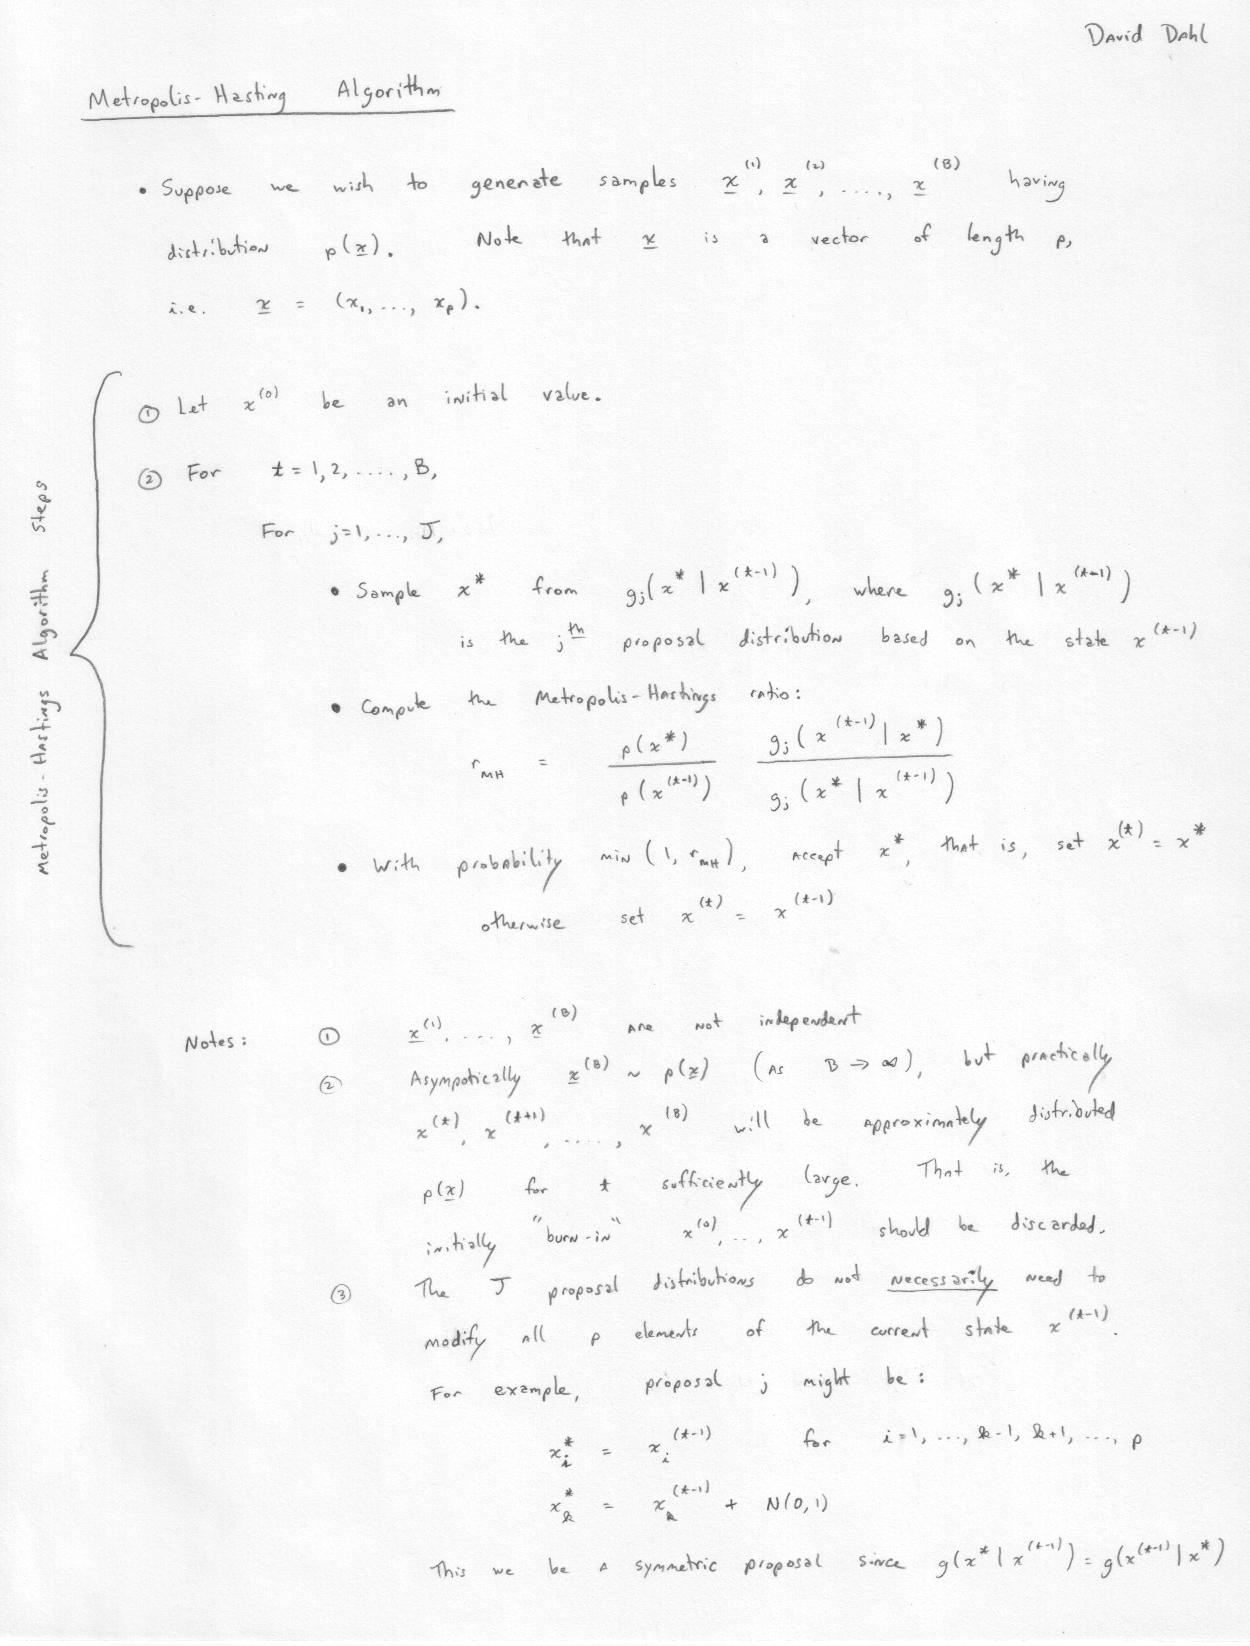 David Dahl
Metropolis-Hasting Algorithm
• Suppose we wish to generate samples x^(1), x^(2), ...., x^(B) having
distribution p(x). Note that x is a vector of length p,
i.e. x = (x₁, ..., x_p).
Metropolis-Hastings Algorithm Steps
① Let x^(0) be an initial value.
② For t = 1, 2, ...., B,
For j=1, ..., J,
• Sample x* from g_j(x* | x^(t-1)), where g_j(x* | x^(t-1))
is the j^th proposal distribution based on the state x^(t-1)
• Compute the Metropolis-Hastings ratio:
r_MH = p(x*) / p(x^(t-1)) g_j(x^(t-1) | x*) / g_j(x* | x^(t-1))
• With probability min(1, r_MH), accept x*, that is, set x^(t) = x*
otherwise set x^(t) = x^(t-1)
Notes: ① x^(1), ...., x^(B) are not independent
② Asympotically x^(B) ~ p(x) (as B → ∞), but practically
x^(t), x^(t+1), ....., x^(B) will be approximately distributed
p(x) for t sufficiently large. That is, the
initially "burn-in" x^(0), ..., x^(t-1) should be discarded.
③ The J proposal distributions do not necessarily need to
modify all p elements of the current state x^(t-1).
For example, proposal j might be:
x_i* = x_i^(t-1) for i=1, ..., k-1, k+1, ..., p
x_k* = x_k^(t-1) + N(0,1)
This we be a symmetric proposal since g(x* | x^(t-1)) = g(x^(t-1) | x*)